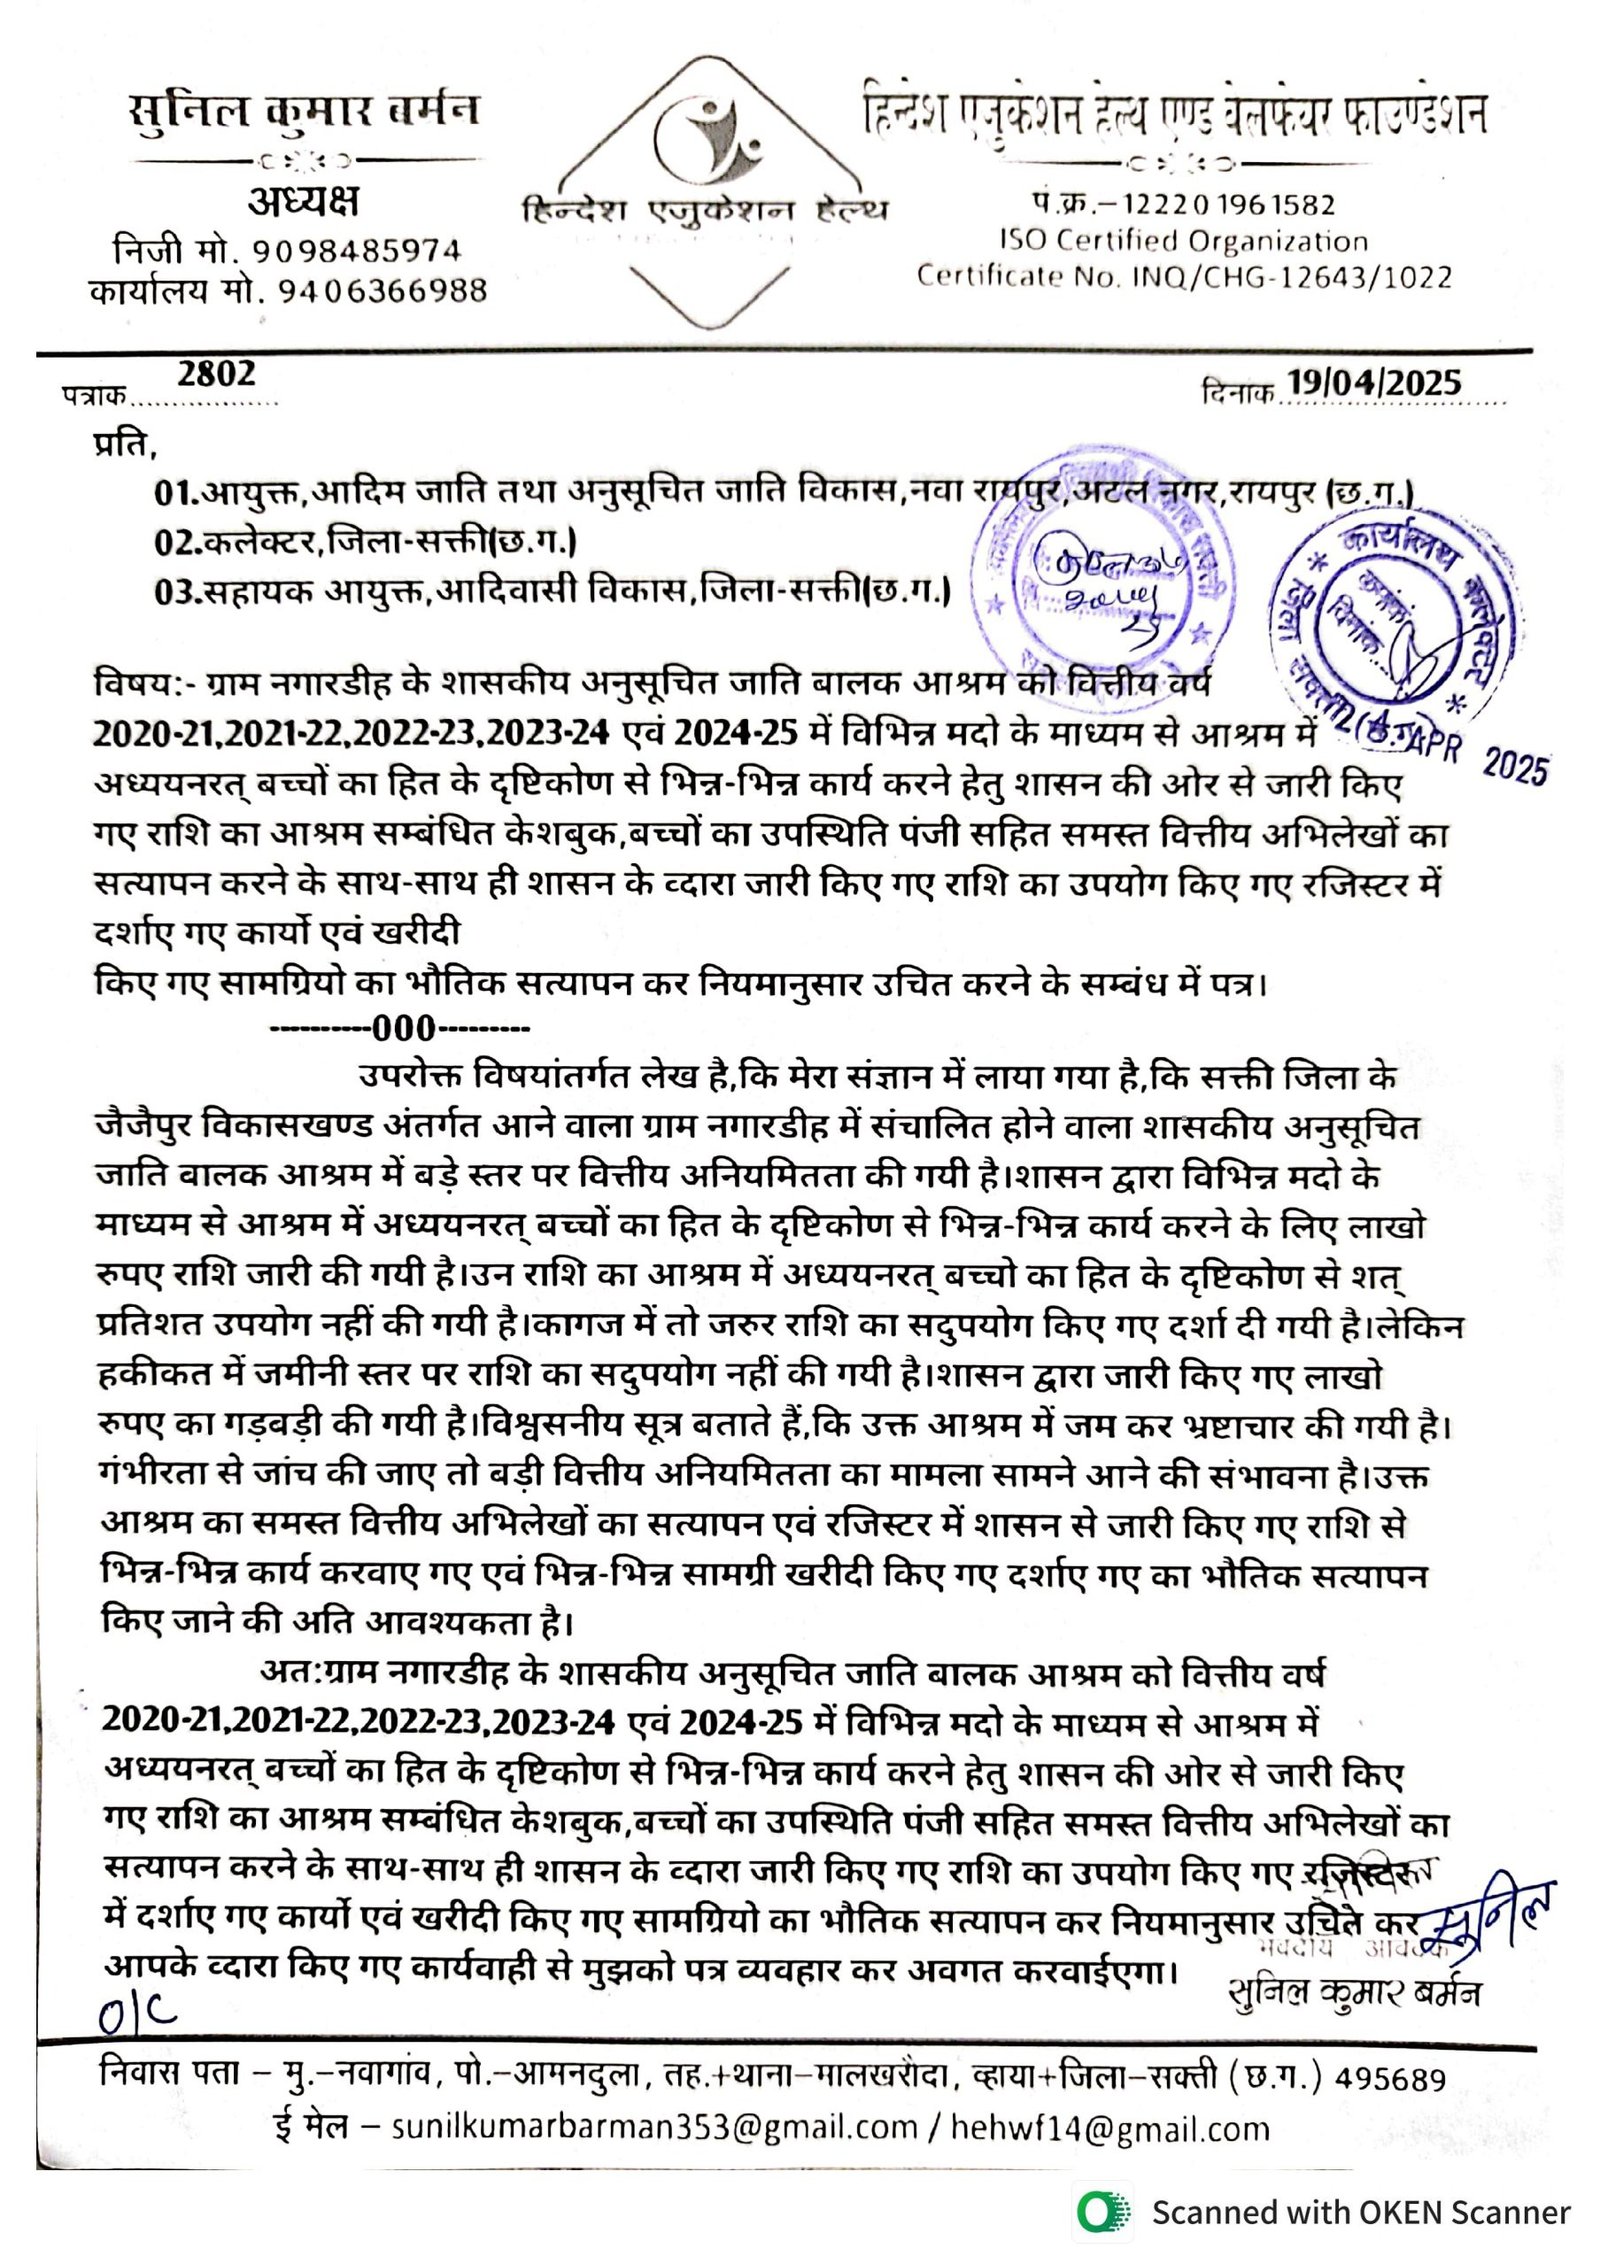 सुनिल कुमार बर्मन
अध्यक्ष
निजी मो. 9098485974
कार्यालय मो. 9406366988
हिन्देश एजुकेशन हेल्थ
हिन्देश एजुकेशन हेल्थ एण्ड वेलफेयर फाउण्डेशन
पं.क्र.–12220 1961582
ISO Certified Organization
Certificate No. INQ/CHG-12643/1022
पत्राक 2802
दिनाक 19/04/2025
प्रति,
01.आयुक्त,आदिम जाति तथा अनुसूचित जाति विकास,नवा रायपुर,अटल नगर,रायपुर (छ.ग.)
02.कलेक्टर,जिला-सक्ती(छ.ग.)
03.सहायक आयुक्त,आदिवासी विकास,जिला-सक्ती(छ.ग.)
कार्यालय कलेक्टर
जिला सक्ती (छ.ग.)
क्रमांक
दिनांक
APR 2025
विषय:- ग्राम नगारडीह के शासकीय अनुसूचित जाति बालक आश्रम को वित्तीय वर्ष
2020-21,2021-22,2022-23,2023-24 एवं 2024-25 में विभिन्न मदो के माध्यम से आश्रम में
अध्ययनरत् बच्चों का हित के दृष्टिकोण से भिन्न-भिन्न कार्य करने हेतु शासन की ओर से जारी किए
गए राशि का आश्रम सम्बंधित केशबुक,बच्चों का उपस्थिति पंजी सहित समस्त वित्तीय अभिलेखों का
सत्यापन करने के साथ-साथ ही शासन के व्दारा जारी किए गए राशि का उपयोग किए गए रजिस्टर में
दर्शाए गए कार्यो एवं खरीदी
किए गए सामग्रियो का भौतिक सत्यापन कर नियमानुसार उचित करने के सम्बंध में पत्र।
----------000---------
उपरोक्त विषयांतर्गत लेख है,कि मेरा संज्ञान में लाया गया है,कि सक्ती जिला के
जैजैपुर विकासखण्ड अंतर्गत आने वाला ग्राम नगारडीह में संचालित होने वाला शासकीय अनुसूचित
जाति बालक आश्रम में बड़े स्तर पर वित्तीय अनियमितता की गयी है।शासन द्वारा विभिन्न मदो के
माध्यम से आश्रम में अध्ययनरत् बच्चों का हित के दृष्टिकोण से भिन्न-भिन्न कार्य करने के लिए लाखो
रुपए राशि जारी की गयी है।उन राशि का आश्रम में अध्ययनरत् बच्चो का हित के दृष्टिकोण से शत्
प्रतिशत उपयोग नहीं की गयी है।कागज में तो जरुर राशि का सदुपयोग किए गए दर्शा दी गयी है।लेकिन
हकीकत में जमीनी स्तर पर राशि का सदुपयोग नहीं की गयी है।शासन द्वारा जारी किए गए लाखो
रुपए का गड़बड़ी की गयी है।विश्वसनीय सूत्र बताते हैं,कि उक्त आश्रम में जम कर भ्रष्टाचार की गयी है।
गंभीरता से जांच की जाए तो बड़ी वित्तीय अनियमितता का मामला सामने आने की संभावना है।उक्त
आश्रम का समस्त वित्तीय अभिलेखों का सत्यापन एवं रजिस्टर में शासन से जारी किए गए राशि से
भिन्न-भिन्न कार्य करवाए गए एवं भिन्न-भिन्न सामग्री खरीदी किए गए दर्शाए गए का भौतिक सत्यापन
किए जाने की अति आवश्यकता है।
अत:ग्राम नगारडीह के शासकीय अनुसूचित जाति बालक आश्रम को वित्तीय वर्ष
2020-21,2021-22,2022-23,2023-24 एवं 2024-25 में विभिन्न मदो के माध्यम से आश्रम में
अध्ययनरत् बच्चों का हित के दृष्टिकोण से भिन्न-भिन्न कार्य करने हेतु शासन की ओर से जारी किए
गए राशि का आश्रम सम्बंधित केशबुक,बच्चों का उपस्थिति पंजी सहित समस्त वित्तीय अभिलेखों का
सत्यापन करने के साथ-साथ ही शासन के व्दारा जारी किए गए राशि का उपयोग किए गए रजिस्टर
में दर्शाए गए कार्यो एवं खरीदी किए गए सामग्रियो का भौतिक सत्यापन कर नियमानुसार उचित कर
आपके व्दारा किए गए कार्यवाही से मुझको पत्र व्यवहार कर अवगत करवाईएगा।
सुनिल
भवदीय आवेदक
सुनिल कुमार बर्मन
O/C
निवास पता – मु.–नवागांव, पो.–आमनदुला, तह.+थाना–मालखरौदा, व्हाया+जिला–सक्ती (छ.ग.) 495689
ई मेल – sunilkumarbarman353@gmail.com / hehwf14@gmail.com
Scanned with OKEN Scanner